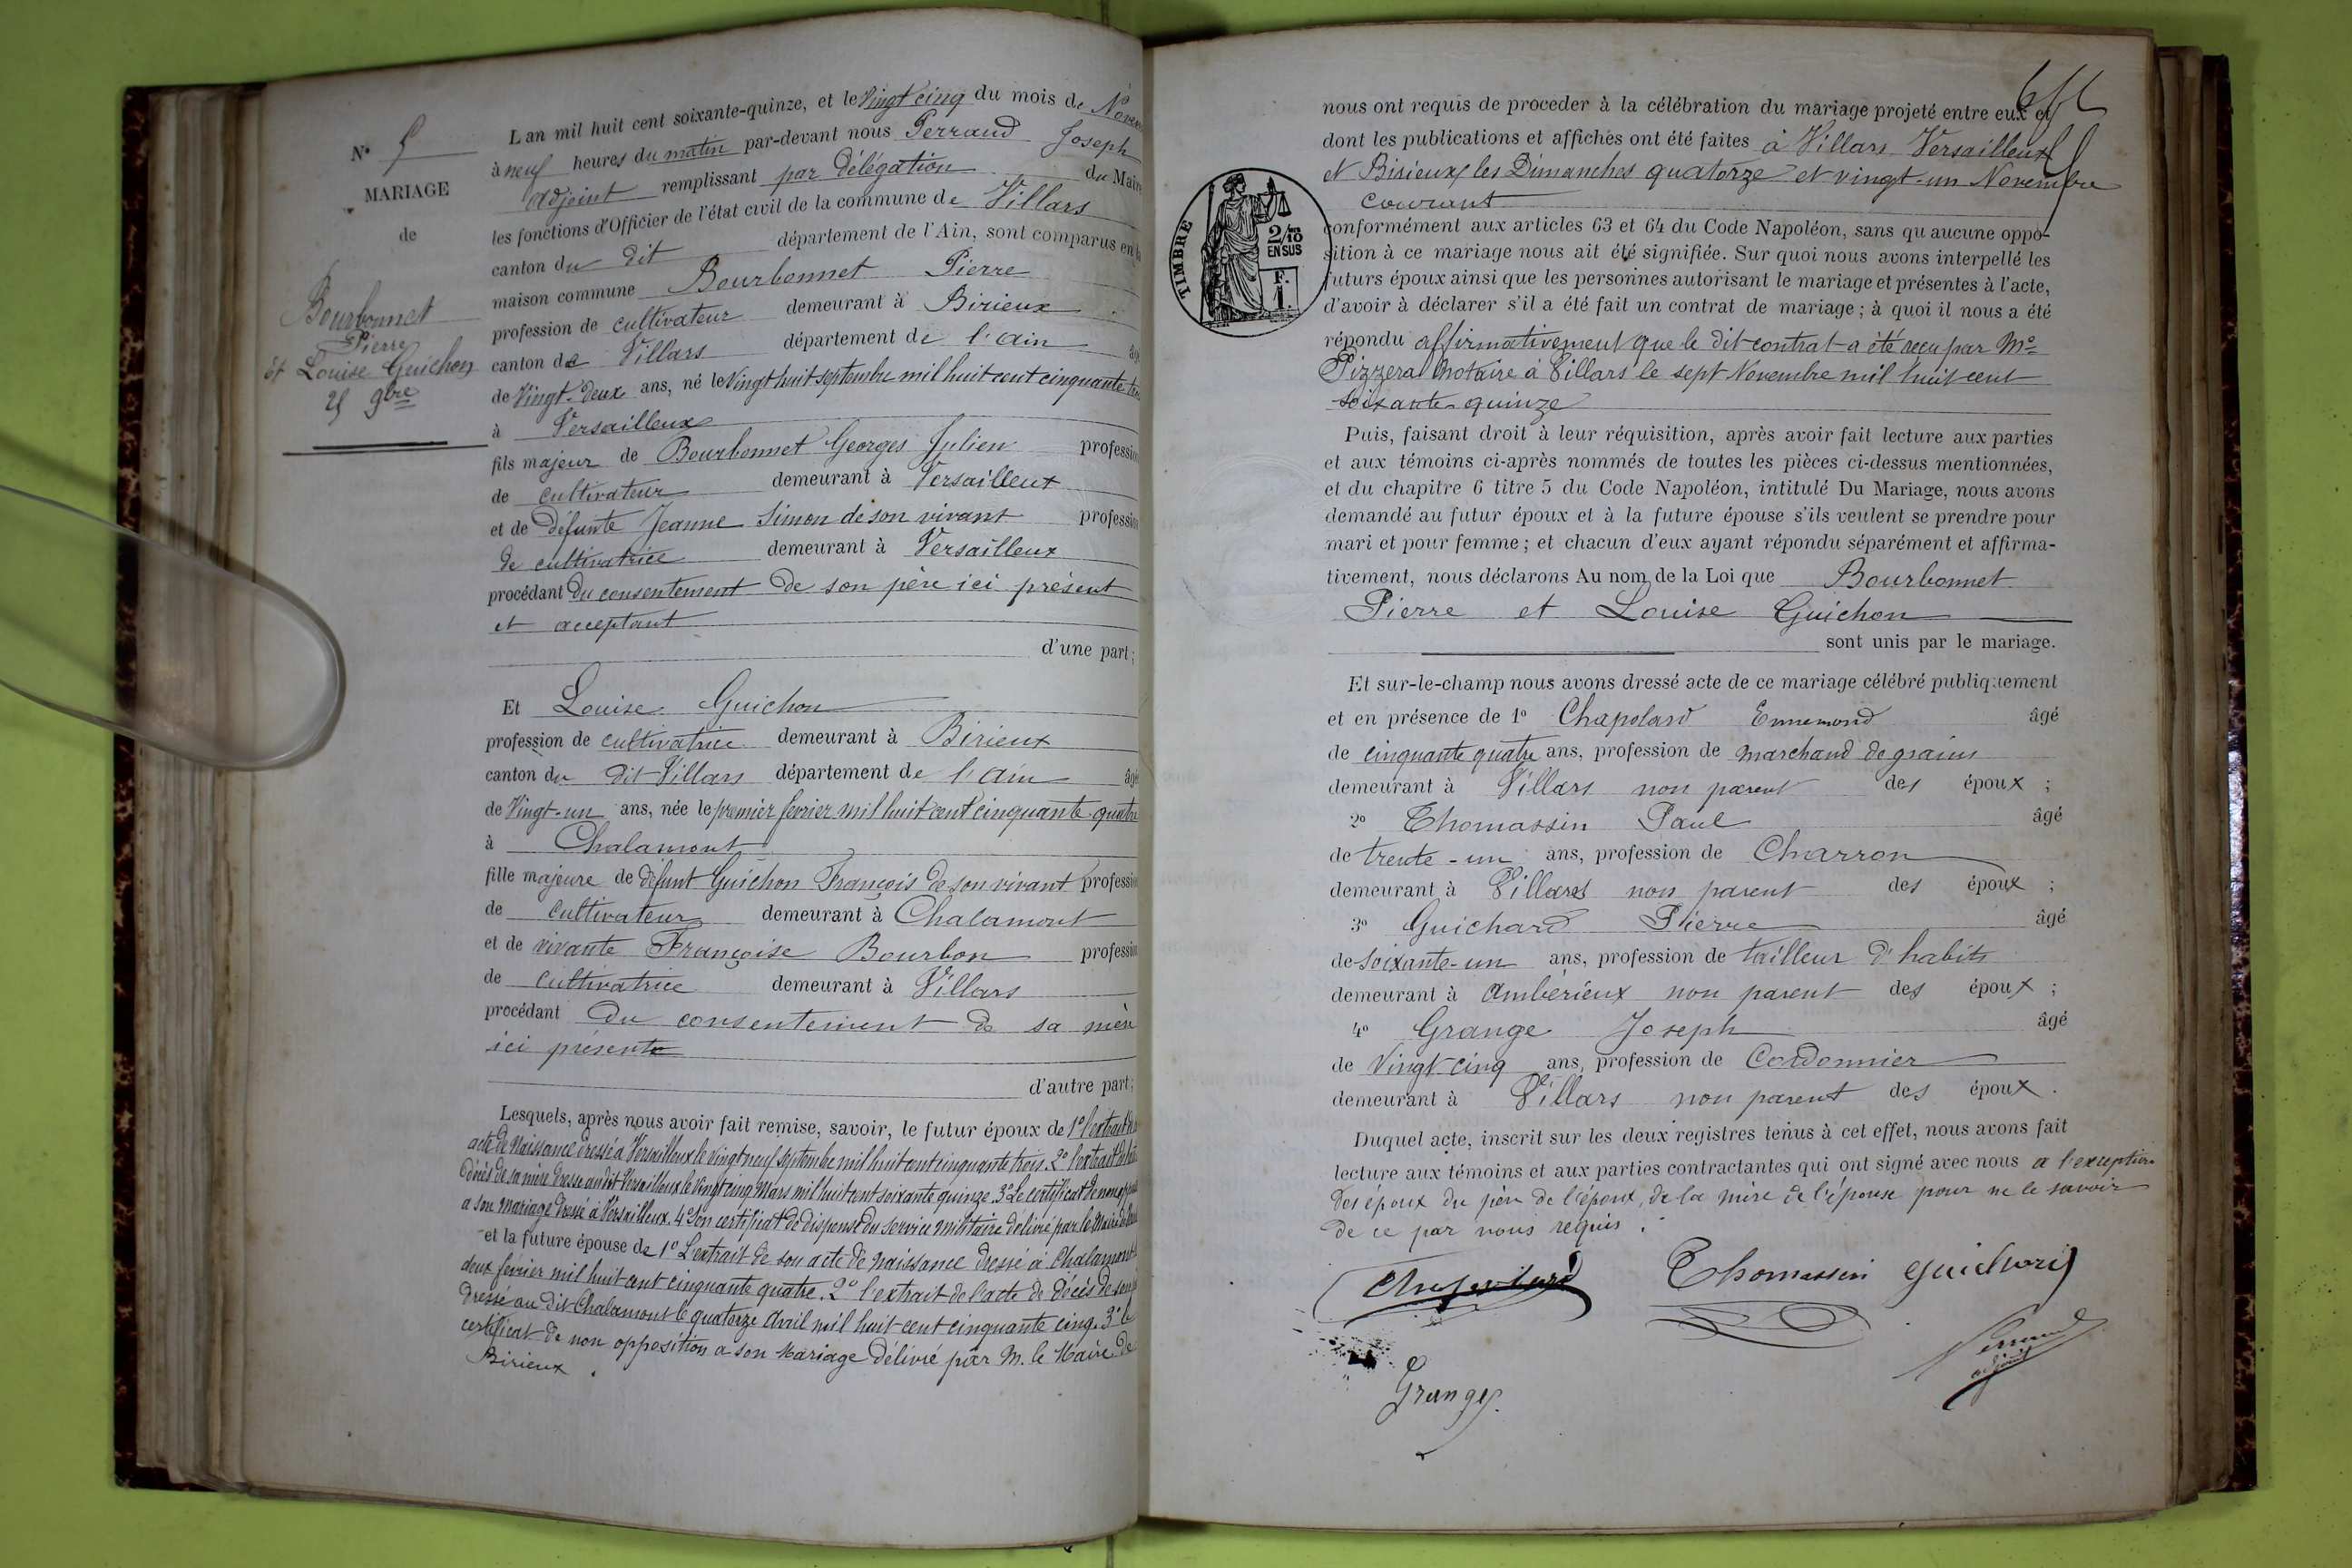 N° 5
MARIAGE
de
Bourbonnet
Pierre
et Louise Guichon
25 9bre
L'an mil huit cent soixante-quinze, et le Vingt cinq du mois de Nov
à neuf heures du matin par-devant nous Perraud Joseph
adjoint remplissant par délégation du Maire
les fonctions d'Officier de l'état civil de la commune de Villars
canton du dit département de l'Ain, sont comparus en la
maison commune Bourbonnet Pierre
profession de cultivateur demeurant à Birieux
canton de Villars département de l'ain âgé
de Vingt-deux ans, né le Vingt huit septembre mil huit cent cinquante trois
à Versailleux
fils majeur de Bourbonnet Georges Julien profession
de cultivateur demeurant à Versailleux
et de défunte Jeanne Simon de son vivant profession
de cultivatrice demeurant à Versailleux
procédant du consentement de son père ici présent
et acceptant
d'une part;
Et Louise Guichon
profession de cultivatrice demeurant à Birieux
canton du dit Villars département de l'ain âgé
de Vingt-un ans, née le premier février mil huit cent cinquante quatre
à Chalamont
fille majeure de défunt Guichon François de son vivant profession
de cultivateur demeurant à Chalamont
et de vivante Françoise Bourbon profession
de cultivatrice demeurant à Villars
procédant du consentement de sa mère
ici présente
d'autre part;
Lesquels, après nous avoir fait remise, savoir, le futur époux de 1° l'extrait
acte de Naissance dressé à Versailleux le vingt neuf septembre mil huit cent cinquante trois. 2° l'extrait de
décès de sa mère dressé au dit Versailleux le Vingt cinq Mars mil huit cent soixante quinze. 3° Le certificat de non
a son mariage dressé à Versailleux. 4° Son certificat de dispense du service militaire délivré par le Maire
et la future épouse de 1° L'extrait de son acte de naissance dressé à Chalamont
deux février mil huit cent cinquante quatre. 2° l'extrait de l'acte de décès de son
dressé au dit Chalamont le quatorze Avril mil huit cent cinquante cinq. 3° le
certificat de non opposition a son Mariage délivré par M. le Maire de
Birieux.
nous ont requis de proceder à la célébration du mariage projeté entre eux et
dont les publications et affiches ont été faites à Villars Versailleux
et Birieux les Dimanches quatorze et vingt-un Novembre
courant
TIMBRE
2/10 EN SUS
F. 1.
conformément aux articles 63 et 64 du Code Napoléon, sans qu'aucune oppo-
sition à ce mariage nous ait été signifiée. Sur quoi nous avons interpellé les
futurs époux ainsi que les personnes autorisant le mariage et présentes à l'acte,
d'avoir à déclarer s'il a été fait un contrat de mariage; à quoi il nous a été
répondu affirmativement que le dit contrat a été reçu par Me
Pizzera Notaire à Villars le sept Novembre mil huit cent
soixante quinze
Puis, faisant droit à leur réquisition, après avoir fait lecture aux parties
et aux témoins ci-après nommés de toutes les pièces ci-dessus mentionnées,
et du chapitre 6 titre 5 du Code Napoléon, intitulé Du Mariage, nous avons
demandé au futur époux et à la future épouse s'ils veulent se prendre pour
mari et pour femme; et chacun d'eux ayant répondu séparément et affirma-
tivement, nous déclarons Au nom de la Loi que Bourbonnet
Pierre et Louise Guichon
sont unis par le mariage.
Et sur-le-champ nous avons dressé acte de ce mariage célébré publiquement
et en présence de 1° Chapolard Ennemond âgé
de cinquante quatre ans, profession de marchand de grains
demeurant à Villars non parent des époux;
2° Thomassin Paul âgé
de trente-un ans, profession de Charron
demeurant à Villars non parent des époux;
3° Guichard Pierre âgé
de soixante-un ans, profession de tailleur d'habits
demeurant à Ambérieux non parent des époux;
4° Grange Joseph âgé
de Vingt cinq ans, profession de Cordonnier
demeurant à Villars non parent des époux.
Duquel acte, inscrit sur les deux registres tenus à cet effet, nous avons fait
lecture aux témoins et aux parties contractantes qui ont signé avec nous a l'exception
des époux du père de l'époux, de la mère de l'épouse pour ne le savoir
de ce par nous requis.
Chapolard Thomassin Guichard
Perraud
adjoint
Grange